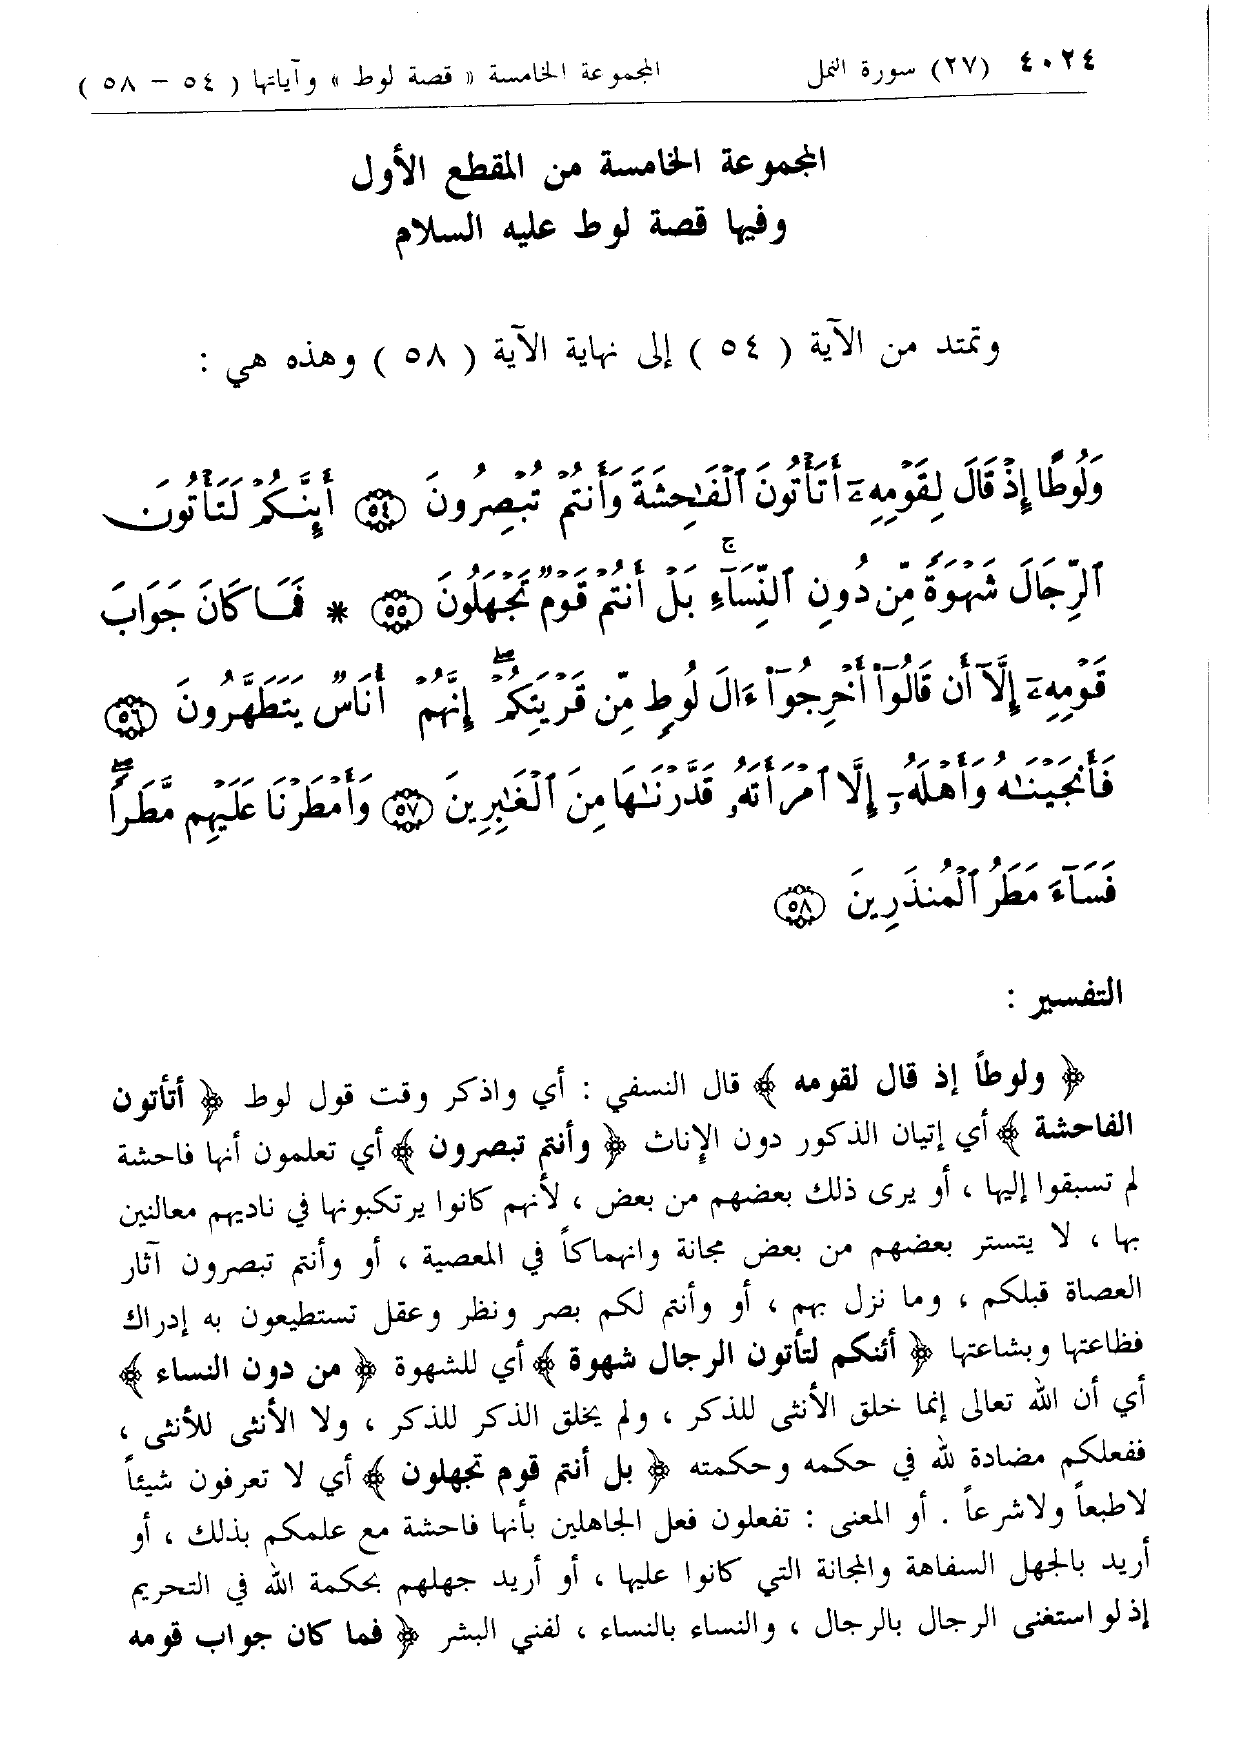 ٤٠٢٤ (٢٧) سورة النمل المجموعة الخامسة « قصة لوط » وآياتها ( ٥٤ – ٥٨ )
المجموعة الخامسة من المقطع الأول
وفيها قصة لوط عليه السلام
وتمتد من الآية ( ٥٤ ) إلى نهاية الآية ( ٥٨ ) وهذه هي :
وَلُوطًا إِذْ قَالَ لِقَوْمِهِۦٓ أَتَأْتُونَ ٱلْفَٰحِشَةَ وَأَنتُمْ تُبْصِرُونَ ٥٤ أَئِنَّكُمْ لَتَأْتُونَ
ٱلرِّجَالَ شَهْوَةً مِّن دُونِ ٱلنِّسَآءِۚ بَلْ أَنتُمْ قَوْمٌ تَجْهَلُونَ ٥٥ * فَمَا كَانَ جَوَابَ
قَوْمِهِۦٓ إِلَّآ أَن قَالُوٓا۟ أَخْرِجُوٓا۟ ءَالَ لُوطٍ مِّن قَرْيَتِكُمْۖ إِنَّهُمْ أُنَاسٌ يَتَطَهَّرُونَ ٥٦
فَأَنجَيْنَٰهُ وَأَهْلَهُۥٓ إِلَّا ٱمْرَأَتَهُۥ قَدَّرْنَٰهَا مِنَ ٱلْغَٰبِرِينَ ٥٧ وَأَمْطَرْنَا عَلَيْهِم مَّطَرًاۖ
فَسَآءَ مَطَرُ ٱلْمُنذَرِينَ ٥٨
التفسير :
﴿ ولوطاً إذ قال لقومه ﴾ قال النسفي : أي واذكر وقت قول لوط ﴿ أتأتون
الفاحشة ﴾ أي إتيان الذكور دون الإناث ﴿ وأنتم تبصرون ﴾ أي تعلمون أنها فاحشة
لم تسبقوا إليها ، أو يرى ذلك بعضهم من بعض ، لأنهم كانوا يرتكبونها في ناديهم معالنين
بها ، لا يتستر بعضهم من بعض مجانة وانهماكاً في المعصية ، أو وأنتم تبصرون آثار
العصاة قبلكم ، وما نزل بهم ، أو وأنتم لكم بصر ونظر وعقل تستطيعون به إدراك
فظاعتها وبشاعتها ﴿ أئنكم لتأتون الرجال شهوة ﴾ أي للشهوة ﴿ من دون النساء ﴾
أي أن الله تعالى إنما خلق الأنثى للذكر ، ولم يخلق الذكر للذكر ، ولا الأنثى للأنثى ،
ففعلكم مضادة لله في حكمه وحكمته ﴿ بل أنتم قوم تجهلون ﴾ أي لا تعرفون شيئاً
لاطبعاً ولاشرعاً . أو المعنى : تفعلون فعل الجاهلين بأنها فاحشة مع علمكم بذلك ، أو
أريد بالجهل السفاهة والمجانة التي كانوا عليها ، أو أريد جهلهم بحكمة الله في التحريم
إذ لو استغنى الرجال بالرجال ، والنساء بالنساء ، لفني البشر ﴿ فما كان جواب قومه